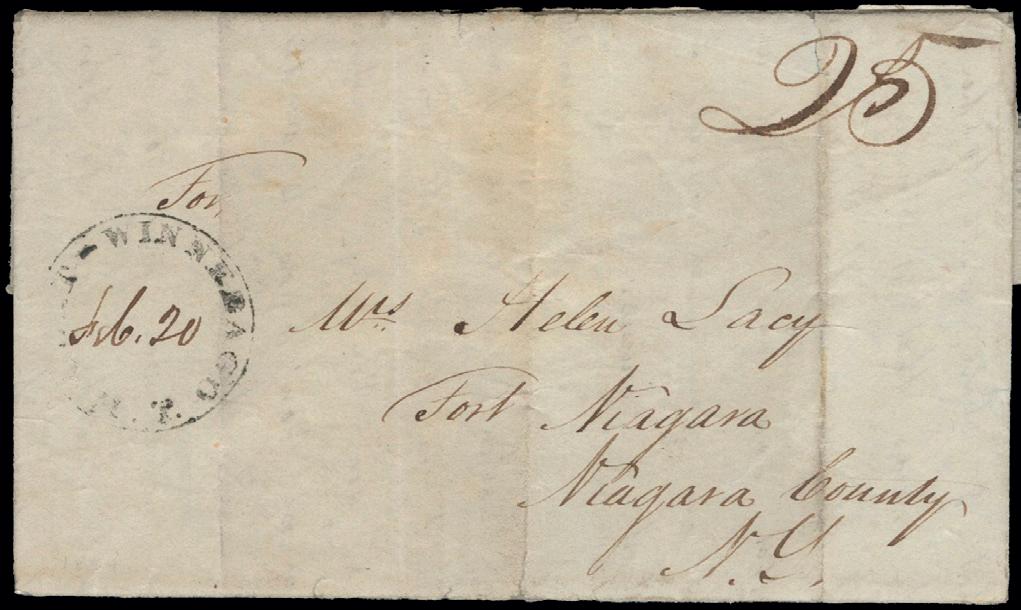 25
For
FORT-WINNEBAGO M.T.
Feb. 20
Mrs Helen Lacy
Fort Niagara
Niagara County
N.Y.